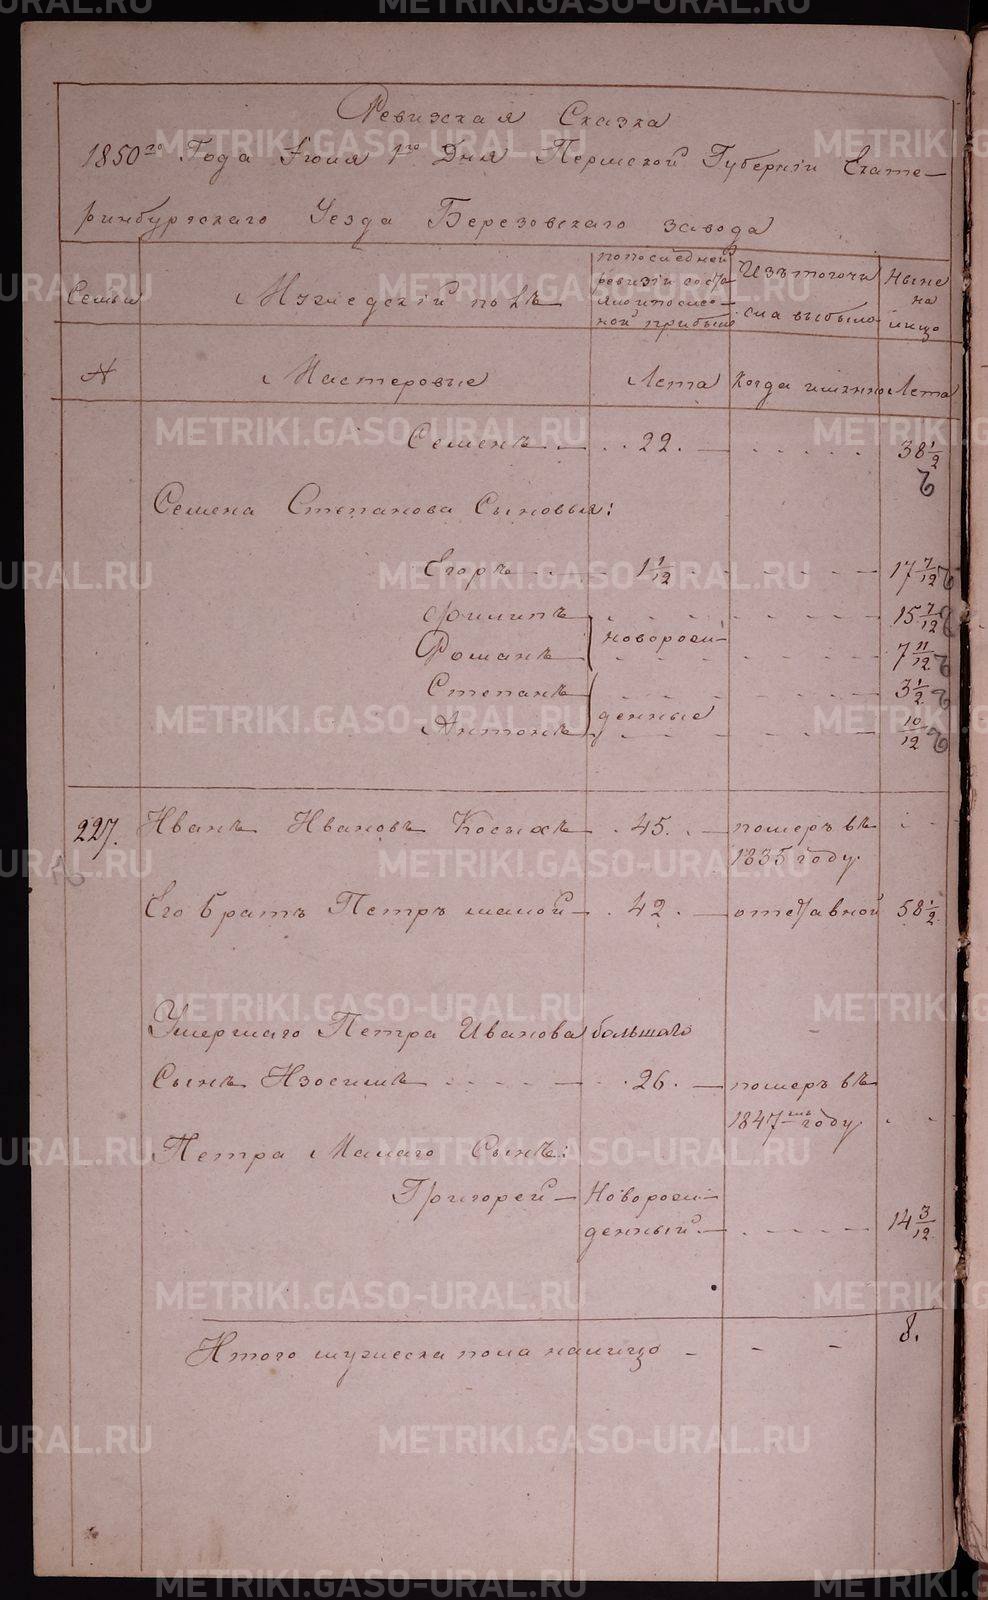 Ревизская Сказка
1850го Года Іюля 1го Дня Пермской Губерніи Екате-
ринбургскаго Уезда Березовскаго завода
Семьи
Мужедскій полъ
по последней ревизіи состояло и после оной прибыло
Изъ того числа выбыло
Ныне на лицо
№
Мастеровые
Лета
Когда именно
Лета
Семенъ 22. 38 1/2
Семена Степанова Сыновья:
Егоръ 1 1/12 17 7/12
Филипъ 15 7/12
новорож-
Романъ 7 11/12
Степанъ 3 1/2
денные
Антонъ 10/12
227. Иванъ Ивановъ Косыхъ 45. померъ въ
1835 году.
Его братъ Петръ малой 42. отставной 58 1/2
Умершаго Петра Иванова большаго
Сынъ Изосимъ 26. померъ въ
1847мъ году.
Петра Малаго Сынъ:
Григорей Новорож-
денный 14 3/12
Итого мужеска пола налицо 8.
METRIKI.GASO-URAL.RU